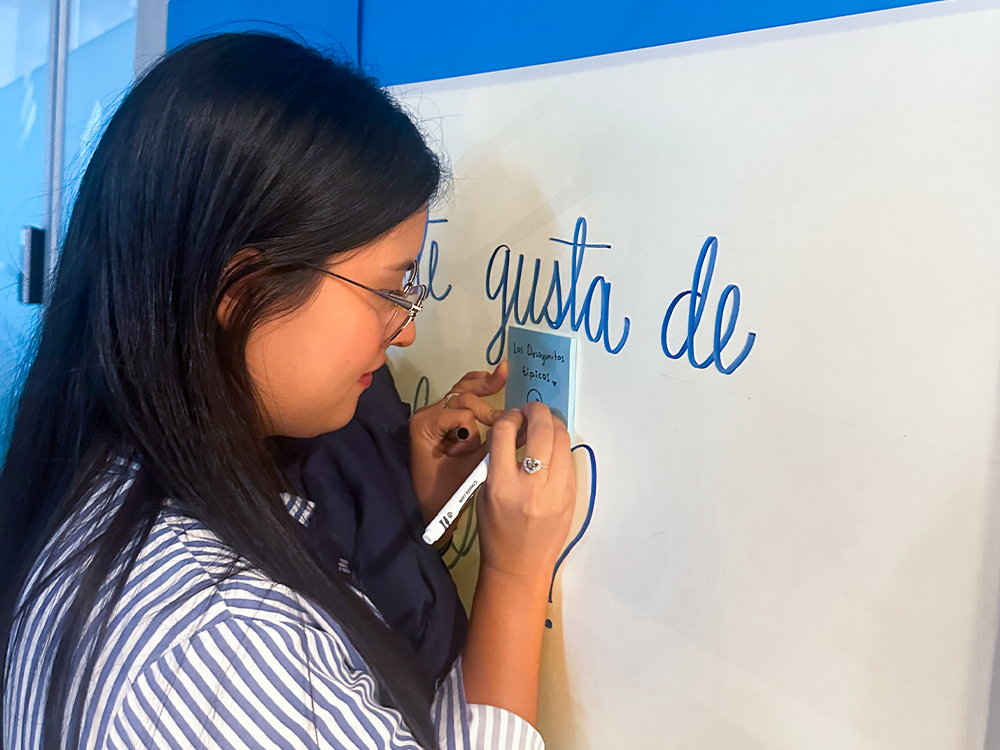 te gusta de
Los Desayunitos
típicos
?